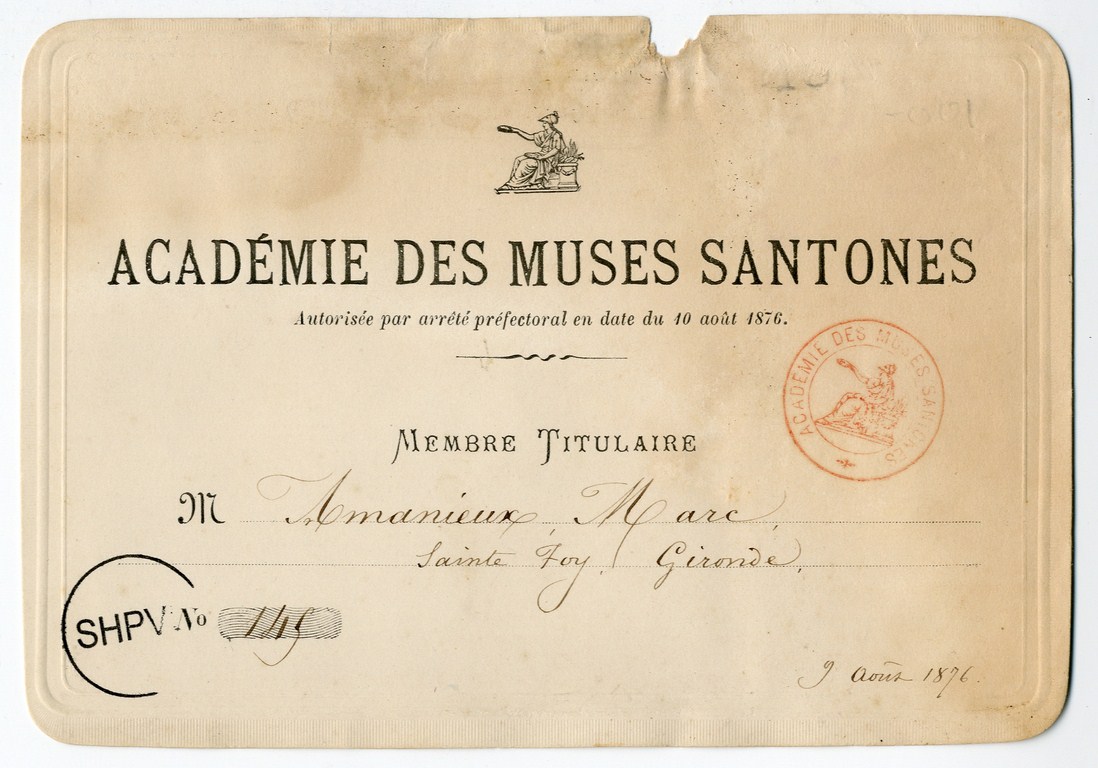 ACADÉMIE DES MUSES SANTONES
Autorisée par arrêté préfectoral en date du 10 août 1876.
ACADÉMIE DES MUSES SANTONES
MEMBRE TITULAIRE
M Amanieux, Marc,
Sainte Foy, Gironde,
SHPV No 145
9 Août 1876.